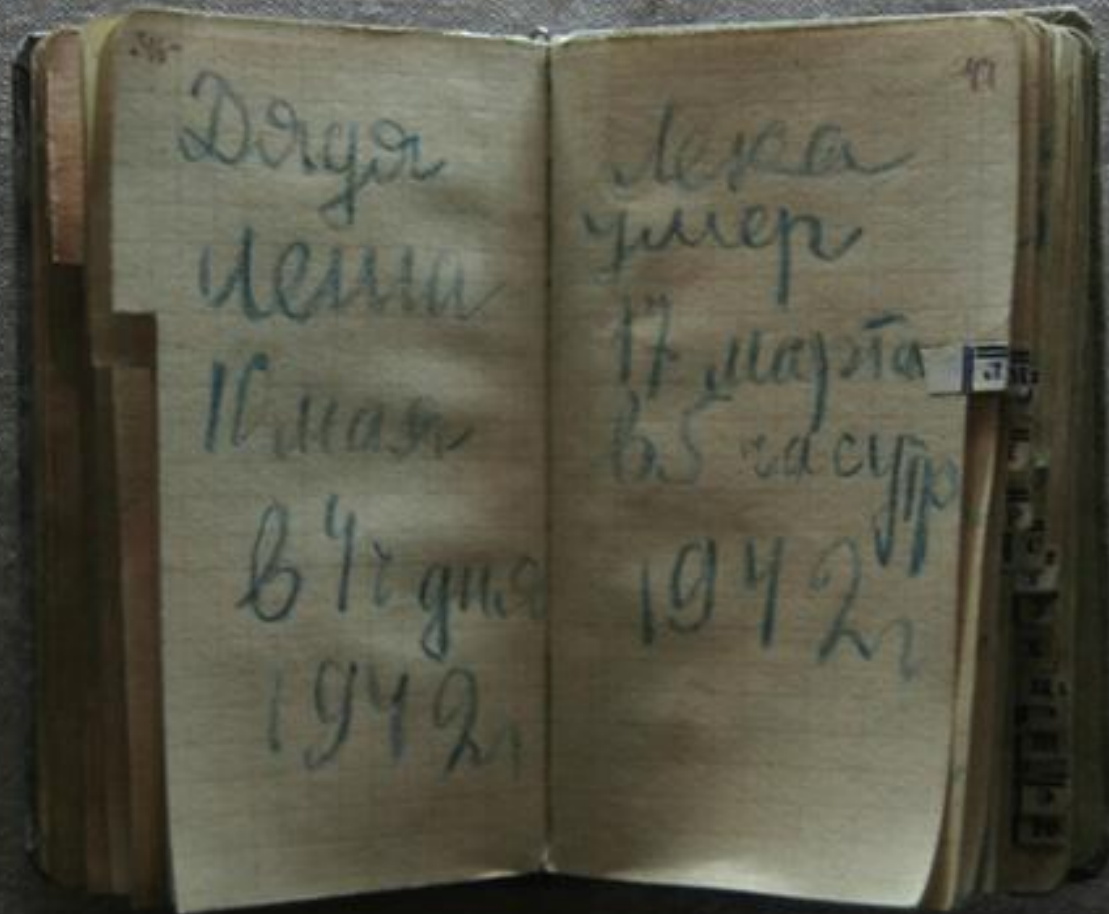 Дядя
Леша
10 мая
в 4 ч дня
1942 г
Лека
умер
17 марта
в 5 часутр
1942 г